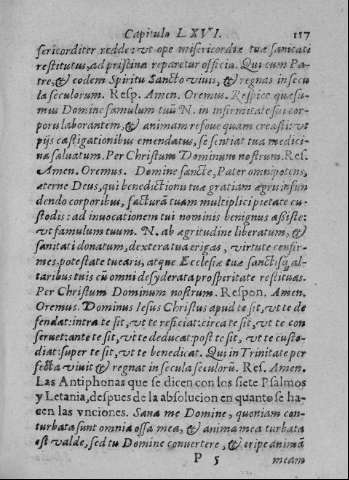 Capitulo LXVI. 117
sericorditer redde: vt ope misericordiæ tuæ sanitati
restitutus, ad pristina reparetur officia. Qui cum Pa-
tre, & eodem Spiritu Sancto viuis, & regnas in secu
la seculorum. Resp. Amen. Oremus. Respice quæsu-
mus Domine famulum tuũ N. in infirmitate sui cor-
poru laborantem, & animam refoue quam creasti: vt
pijs castigationibus emendatus, se sentiat tua medici-
na saluatum. Per Christum Dominum nostrum. Res.
Amen. Oremus. Domine sancte, Pater omnipotens,
æterne Deus, qui benedictionis tuæ gratiam ægris infun
dendo corporibus, facturã tuam multiplici pietate cu-
stodis: ad inuocationem tui nominis benignus assiste:
vt famulum tuum. N. ab ægritudine liberatum, &
sanitati donatum, dextera tua erigas, virtute confir-
mes, potestate tuearis, atque Ecclesiæ tuæ sanctisq; al-
taribus tuis cũ omni desyderata prosperitate restituas.
Per Christum Dominum nostrum. Respon. Amen.
Oremus. Dominus Iesus Christus apud te sit, vt te de
fendat: intra te sit, vt te reficiat: circa te sit, vt te con
seruet: ante te sit, vt te deducat: post te sit, vt te custo-
diat: super te sit, vt te benedicat. Qui in Trinitate per
fecta viuit & regnat in secula seculorũ. Res. Amen.
Las Antiphonas que se dicen con los siete Psalmos
y Letania, despues de la absolucion en quanto se ha-
cen las vnciones. Sana me Domine, quoniam con-
turbata sunt omnia ossa mea, & anima mea turbata
est valde, sed tu Domine conuertere, & eripe animã
P 5 meam